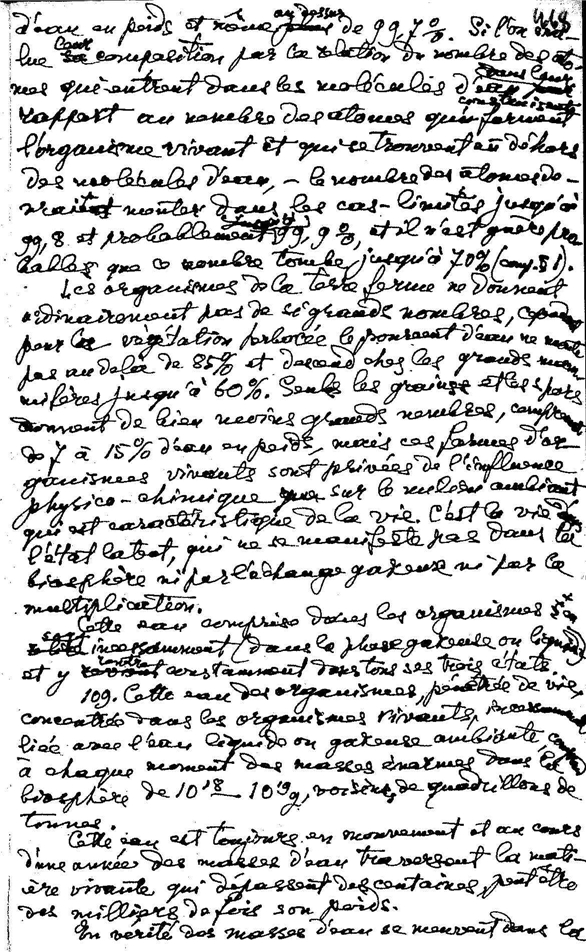 d'eau en poids et même au dessus de 99,7%. Si l'on
lue leur composition par la relation du nombre des ato-
mes qui entrent dans les molécules d'eau dans leur
rapport au nombre des atomes qui forment
l'organisme vivant et qui se trouvent en dehors
des molécules d'eau, – le nombre des atomes de-
vrait monter dans les cas-limites jusqu'à
99,8 et probablement jusqu'à 99,9%, et il n'est guère pro
bables que ce nombre tombe jusqu'à 70% (comp. § 1).
Les organismes de la terre ferme ne donnent
ordinairement pas de si grands nombres,
pour la végétation le pourcent d'eau ne monte
pas au delà de 85% et descend chez les grands mam
mifères jusqu'à 60%. Seuls les graines et les spores
donnent de bien moins grands nombres,
de 7 à 15% d'eau en poids, mais ces formes d'or
ganismes vivants sont privées de l'influence
physico-chimique sur le milieu ambiant
qui est caractéristique de la vie. C'est la vie
l'état latent, qui ne se manifeste pas dans la
biosphère ni par l'échange gazeux ni par la
multiplication.
Cette eau comprise dans les organismes
incessamment (dans la phase gazeuse ou liquide)
et y rentre constamment dans tous ses trois états
109. Cette eau des organismes, pénétrée de vie,
concentrée dans les organismes vivants,
liée avec l'eau liquide ou gazeuse ambiante
à chaque moment des masses énormes dans la
biosphère de 10¹⁸ – 10¹⁹g, voisines de quadrillons de
tonnes.
Cette eau est toujours en mouvement et au cours
d'une année des masses d'eau traversent la mati-
ère vivante qui dépassent des centaines, peut être
des milliers de fois son poids.
En verité des masses d'eau se meuvent dans la